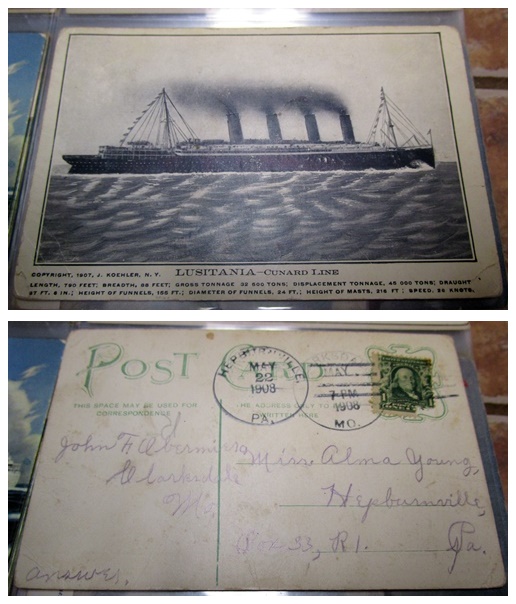 COPYRIGHT, 1907, J. KOEHLER, N. Y. LUSITANIA—CUNARD LINE
LENGTH, 790 FEET; BREADTH, 88 FEET; GROSS TONNAGE 32 500 TONS; DISPLACEMENT TONNAGE, 45 000 TONS; DRAUGHT
37 FT. 6 IN.; HEIGHT OF FUNNELS, 155 FT.; DIAMETER OF FUNNELS, 24 FT.; HEIGHT OF MASTS, 216 FT; SPEED, 25 KNOTS.
POST
THIS SPACE MAY BE USED FOR
CORRESPONDENCE
HEPBURNVILLE,
MAY
22
1908
PA.
MAY
7-PM
1908
MO.
John F
Clarksdale
Mo.
Answer.
Miss Alma Young,
Hepburnville
Box 33, R 1. Pa.